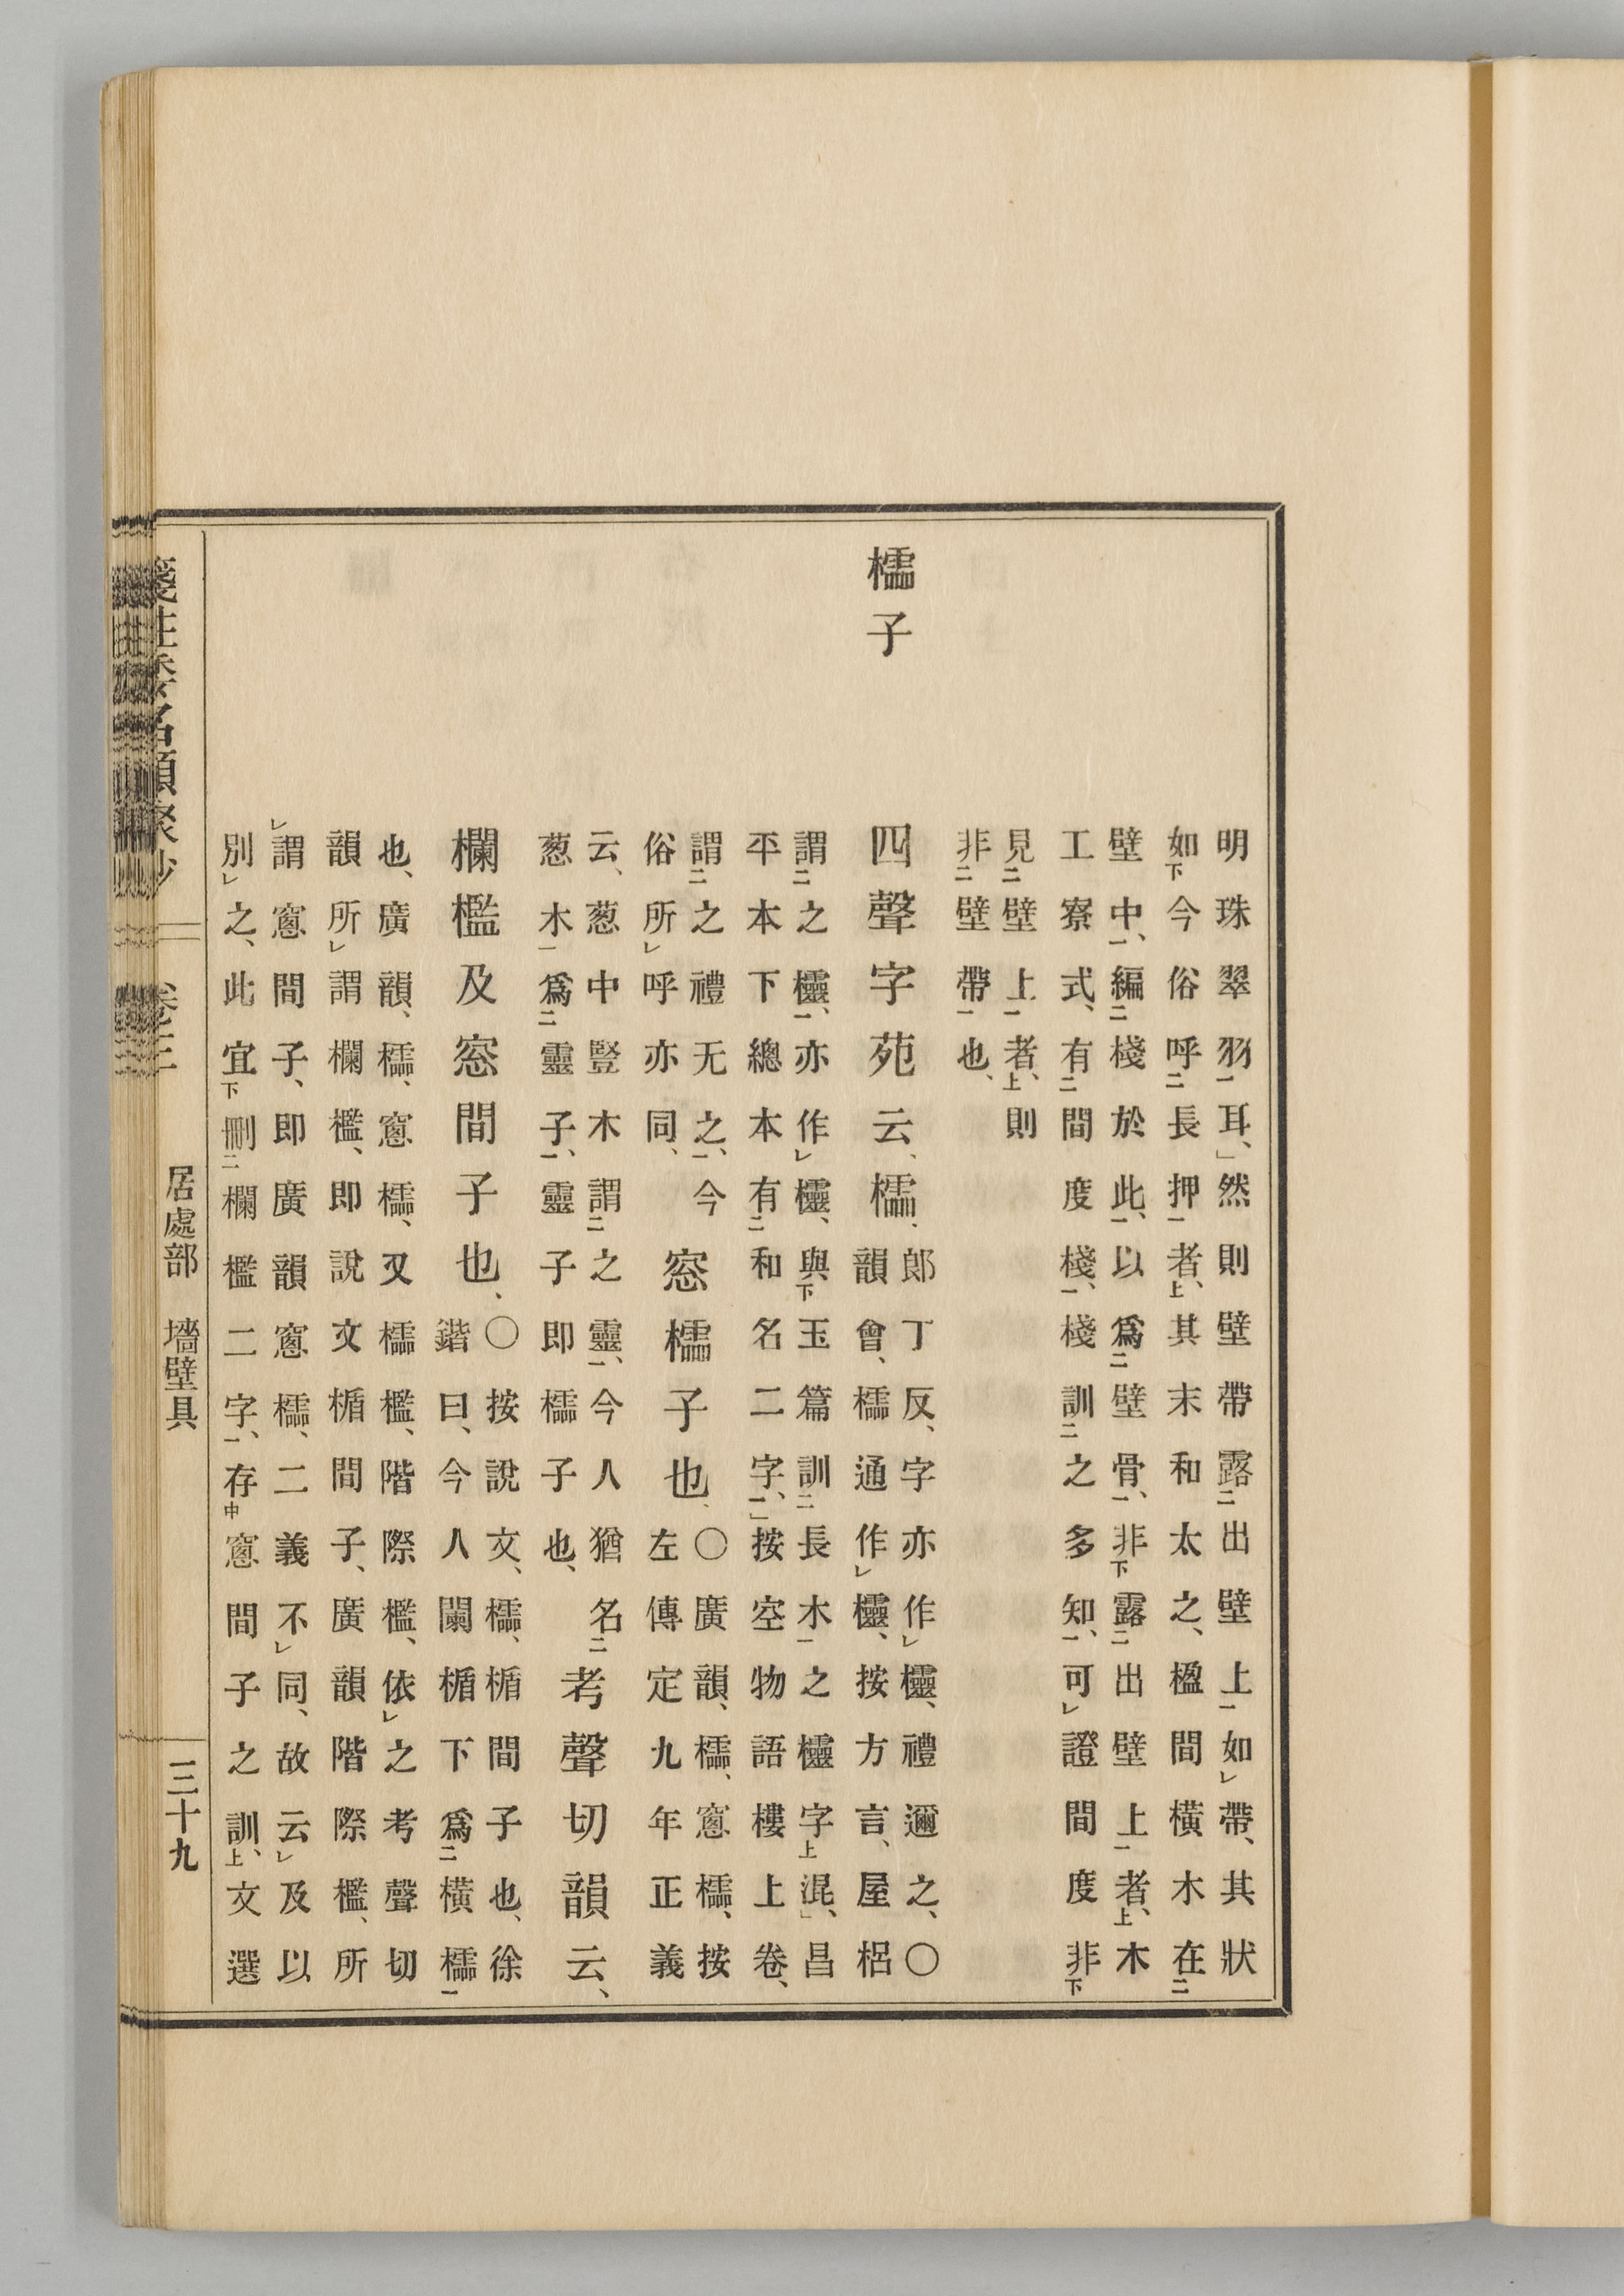 明珠翠羽一耳、」然則壁帶露二出壁上一如レ帶、其狀
如下今俗呼二長押一者上、其末和太之、楹間橫木在二
壁中一、編二棧於此一、以爲二壁骨一、非下露二出壁上一者上、木
工寮式、有二間度棧一、棧訓二之多知一、可レ證間度非下
見二壁上一者上、則
非二壁帶一也、
櫺子
四聲字苑云、櫺、
郎丁反、字亦作レ欞、禮邇之、○
韻會、櫺通作レ欞、按方言、屋梠
謂二之欞一、亦作レ欞、與下玉篇訓二長木一之欞字上混、」昌
平本下總本有二和名二字一、」按空物語樓上卷、
謂二之禮无之一、今
俗所レ呼亦同、
窓櫺子也、
○廣韻、櫺、窻櫺、按
左傳定九年正義
云、葱中豎木謂二之靈一、今人猶名二
葱木一爲二靈子一、靈子即櫺子也、
考聲切韻云、
欄檻及窓間子也、
○按說文、櫺、楯間子也、徐
鍇曰、今人闌楯下爲二橫櫺一
也、廣韻、櫺、窻櫺、又櫺檻、階際檻、依レ之考聲切
韻所レ謂欄檻、即說文楯間子、廣韻階際檻、所
レ謂窻間子、即廣韻窻櫺、二義不レ同、故云レ及以
別レ之、此宜下刪二欄檻二字一、存中窻間子之訓上、文選
箋注倭名類聚抄 卷三 居處部 墻壁具 三十九